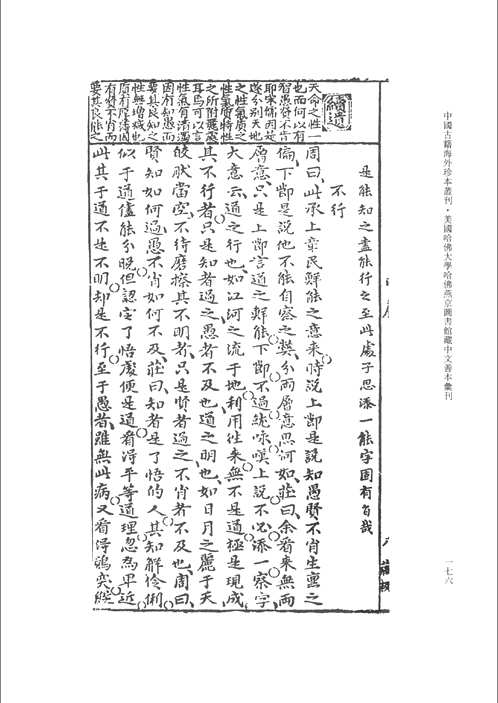 中國古籍海外珍本叢刊·美國哈佛大學哈佛燕京圖書館藏中文善本彙刊
一七六
是能知之盡能行之至此處子思添一能字固有旨哉
不行
周曰此承上章民鮮能之意來時說上節是說知愚賢不肖生稟之
偏下節是說他不能自察之獘分兩層意思何如莊曰余看來無兩
層意只是上節言道之鮮能下節不過繞咏嘆上說不必添一察字
大意云道之行也如江河之流于地利用徃來無不是道極是現成
其不行者只是知者過之愚者不及也道之明也如日月之麗于天
皎狀當空不待磨擦其不明者只是賢者過之不肖者不及也周曰
賢知如何過愚不肖如何不及莊曰知者是了悟的人其知解伶俐
似于道儘能分曉但認定了悟處便是道看淂平等道理忽為卑近
此其于道不是不明却是不行至于愚者雖無此病又看得鶻突縱
續遺
天命之性一
也而何以有
智愚賢不肖
耶宋儒因是
遂分别天地
之性氣質之
性氣質特性
之所附麗處
耳烏可以言
性氣有清濁
因有知愚而
要其良知之
性無增減也
質有厚薄因
有賢不肖而
要其良能之